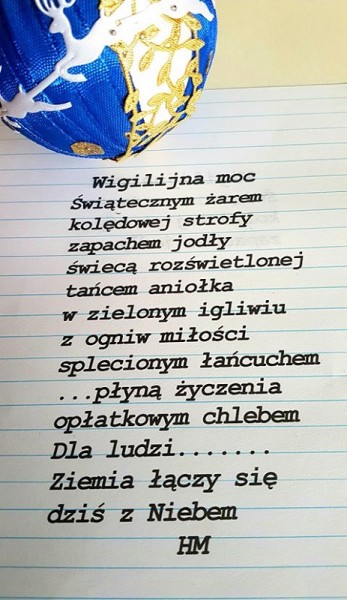 Wigilijna moc
Świątecznym żarem
kolędowej strofy
zapachem jodły
świecą rozświetlonej
tańcem aniołka
w zielonym igliwiu
z ogniw miłości
splecionym łańcuchem
...płyną życzenia
opłatkowym chlebem
Dla ludzi.......
Ziemia łączy się
dziś z Niebem
HM